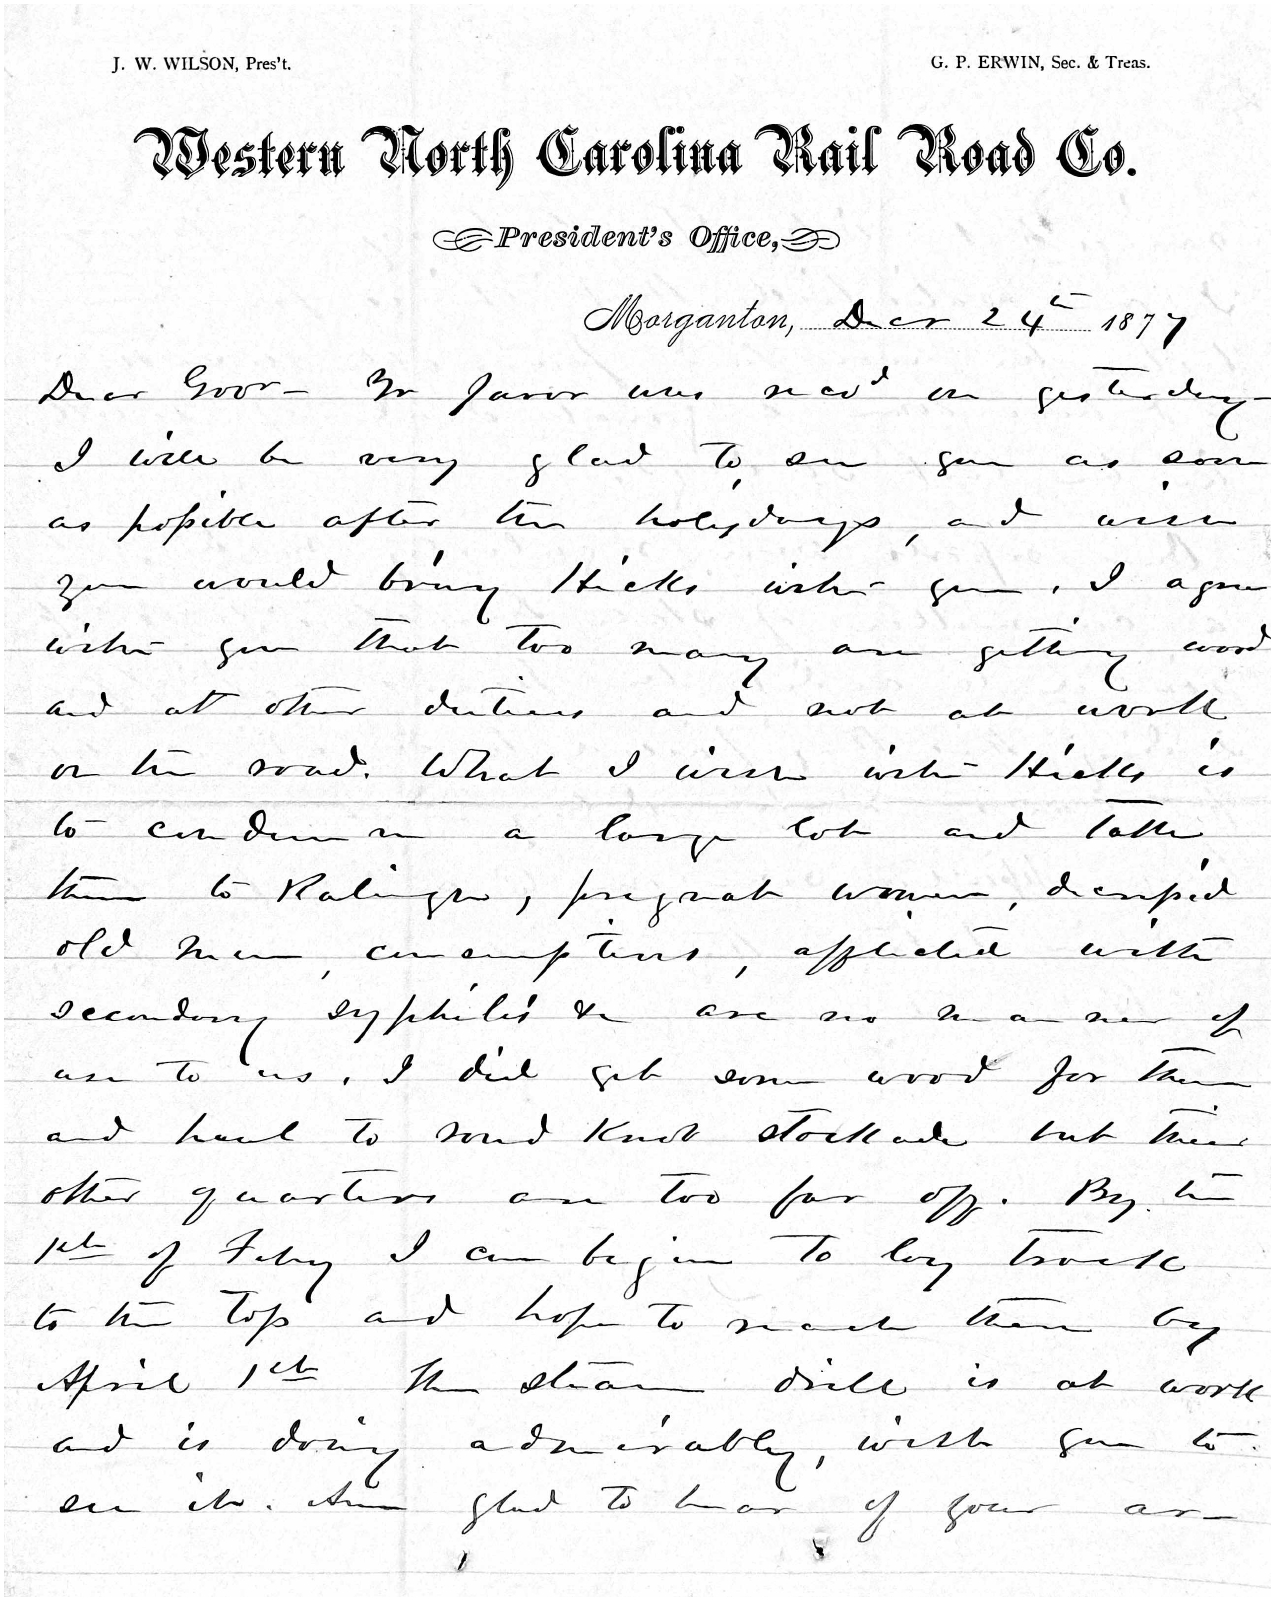 J. W. WILSON, Pres't.
G. P. ERWIN, Sec. & Treas.
Western North Carolina Rail Road Co.
President's Office,
Morganton, Decr 24th 1877
Dear Govr- Yr favor was recd on yesterday-
I will be very glad to see you as soon
as possible after the holydays, and wish
you would bring Hicks with you. I agree
with you that too many are getting wood
and at other duties and not at work
on the road. What I wish with Hicks is
to condemn a large lot and take
them to Raleigh, pregnat women, decrepid
old men, consumptives, afflicted with
secondary syphilis &c are no manner of
use to us. I did get some wood for them
and haul to round Knob stockade but their
other quarters are too far off. By the
1st of Feby I can begin to lay track
to the top and hope to reach there by
April 1st The steam drill is at work
and is doing admirably, wish you to
see it. Am glad to hear of your ar-